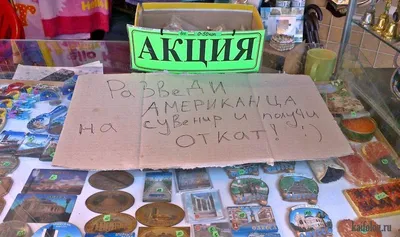 АКЦИЯ
Разведи
АМЕРИКАНЦА
на сувенир и получи
ОТКАТ! :)